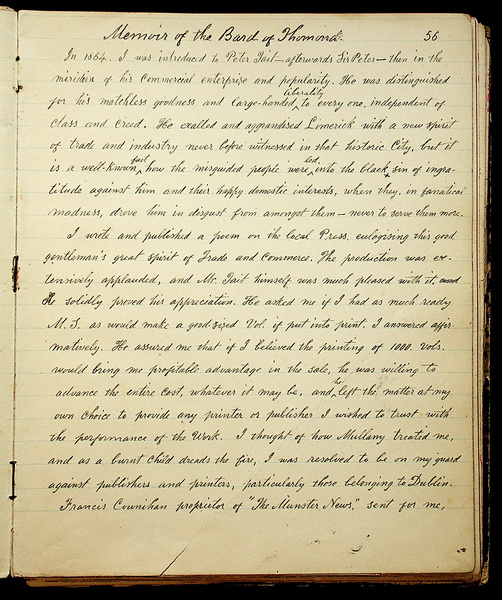 Memoir of the Bard of Thomond. 56
In 1864. I was introduced to Peter Tait — afterwards Sir Peter — then in the
meridian of his Commercial enterprise and popularity. He was distinguished
for his matchless goodness and large-handed liberality to every one, independent of
Class and Creed. He exalted and aggrandised Limerick with a new spirit
of trade and industry never before witnessed in that historic City, but it
is a well-known fact, how the misguided people were led, into the black sin of ingra-
titude against him and their happy domestic interests, when they, in fanatical
madness, drove him in disgust from amongst them — never to serve them more.
I wrote and published a poem on the local Press, eulogising this good
gentleman's great spirit of Trade and Commerce. The production was ex-
tensively applauded, and Mr. Tait himself was much pleased with it, and
He solidly proved his appreciation. He asked me if I had as much ready
M.S. as would make a good-sized Vol. if put into print. I answered affir-
matively. He assured me that if I believed the printing of 1000. Vols.
would bring me profitable advantage in the sale, he was willing to
advance the entire Cost, whatever it may be, and he left the matter at my
own Choice to provide any printer or publisher I wished to trust with
the performance of the Work. I thought of how Mullany treated me,
and as a burnt Child dreads the fire, I was resolved to be on my guard
against publishers and printers, particularly those belonging to Dublin.
Francis Counihan proprietor of "The Munster News," sent for me,